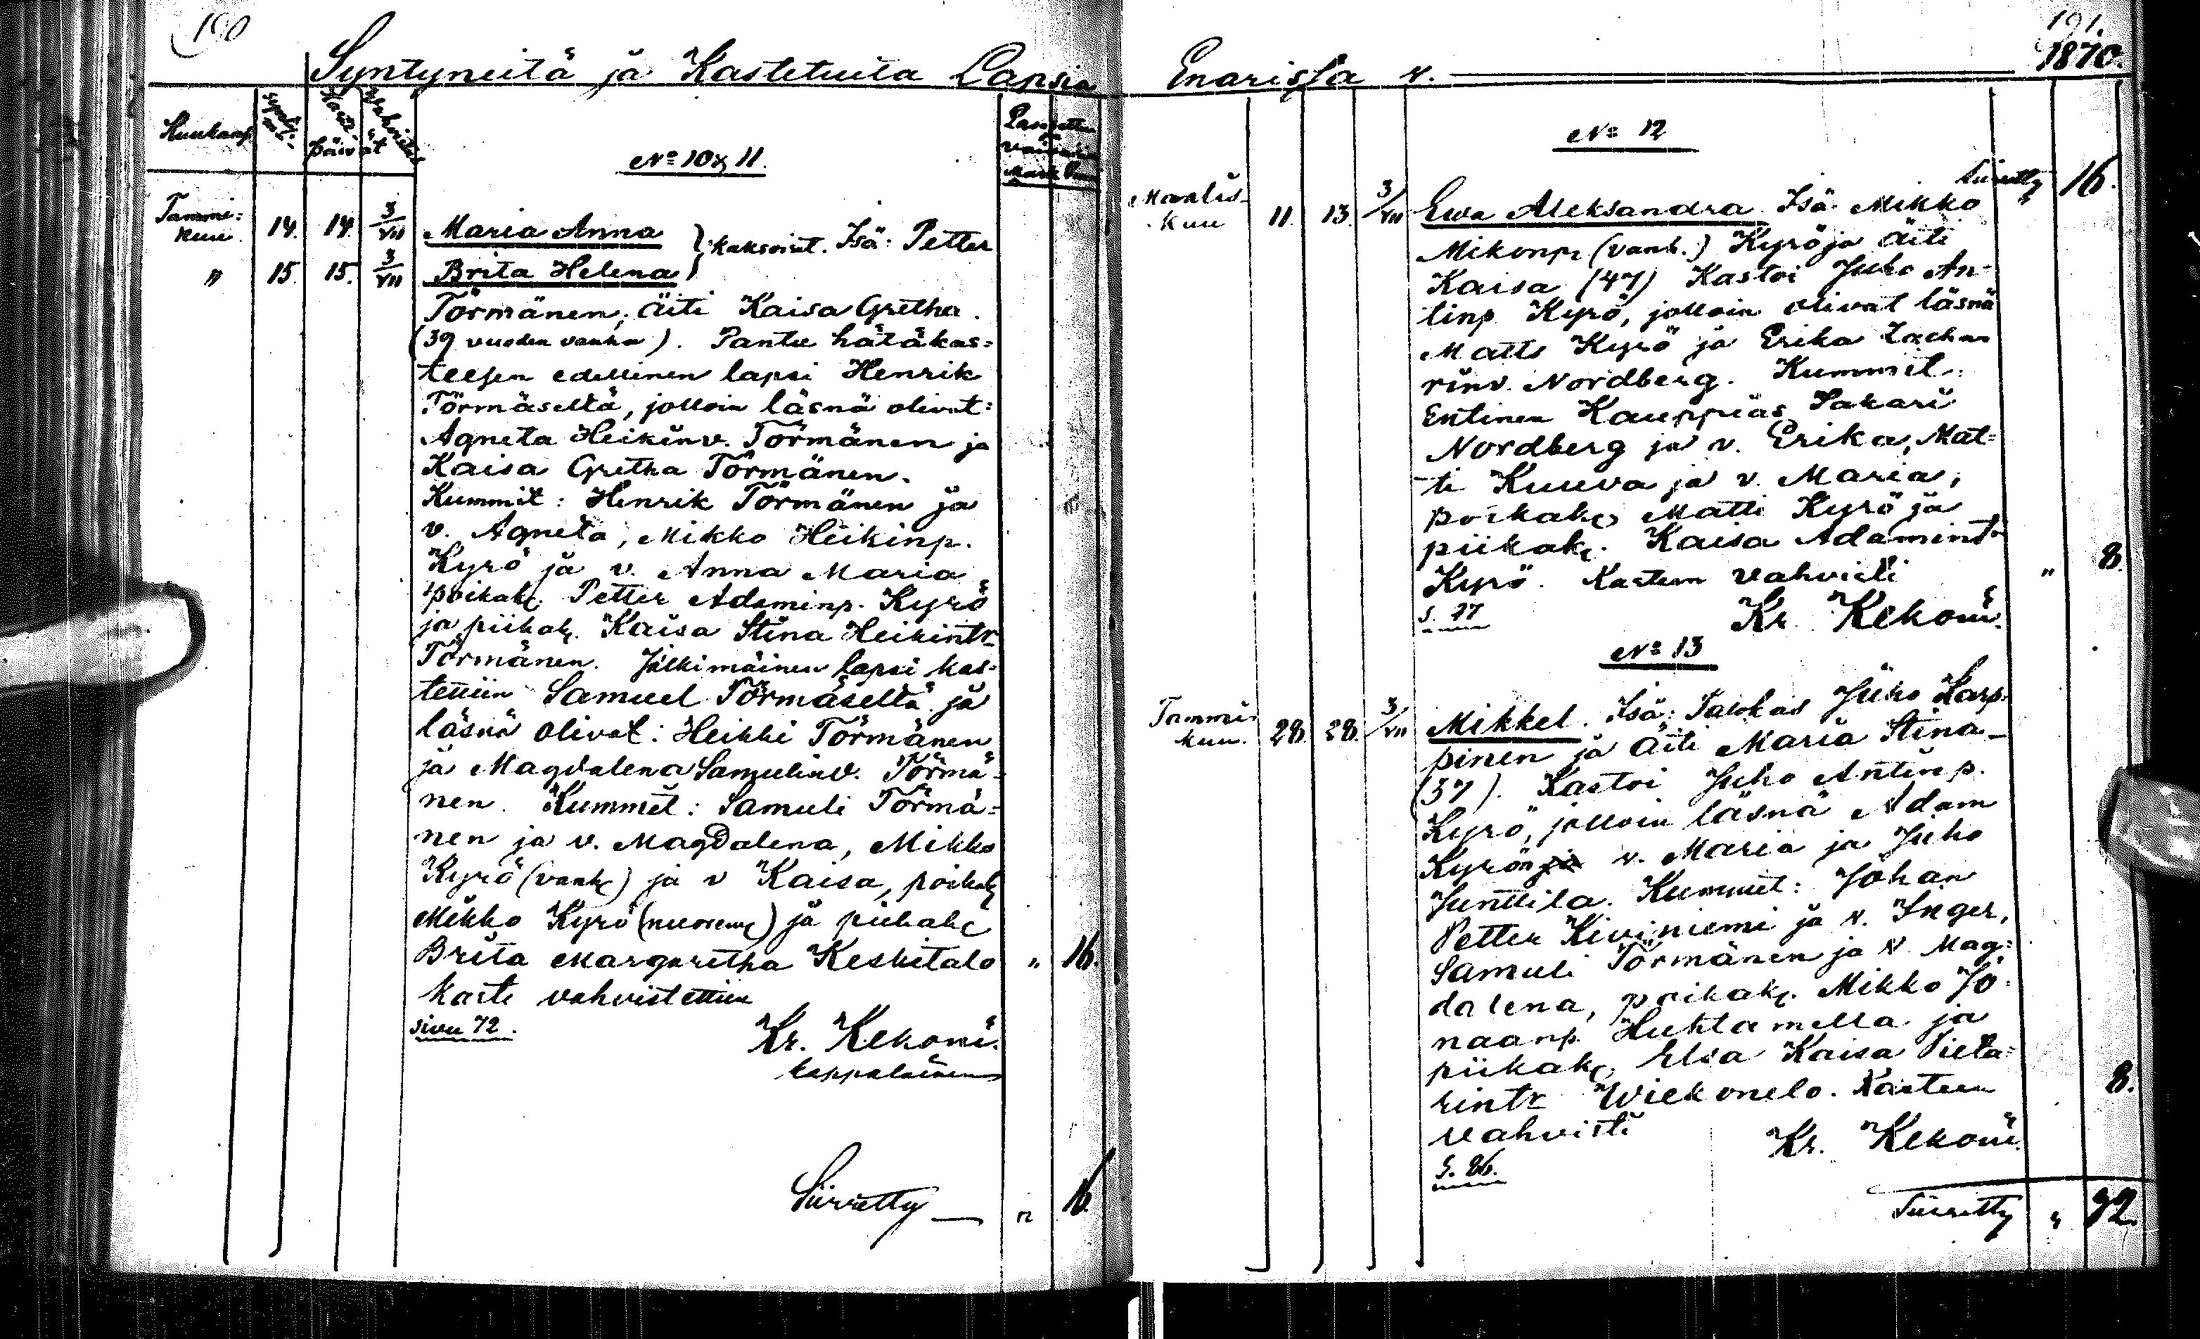 190
Syntyneitä ja Kastetuita Lapsia
Kuukausi
päivät
No 10 & 11.
Tammi=
kuu.
14. 14. 3/VII
Maria Anna } kaksoiset. Isä: Petter
" 15. 15. 3/VII
Brita Helena
Törmänen, äiti Kaisa Gretha
(39 vuoden vanha). Pantu hätäkas=
teesen edellinen lapsi Henrik
Törmäseltä, jolloin läsnä olivat:
Agneta Heikinv. Törmänen ja
Kaisa Gretha Törmänen.
Kummit: Henrik Törmänen ja
v. Agneta, Mikko Heikinp.
Kyrö ja v. Anna Maria
poikak. Petter Adaminp. Kyrö
ja piikak. Kaisa Stina Heikintr
Törmänen. Jälkimäinen lapsi kas=
tettiin Samuel Törmäseltä ja
läsnä olivat: Heikki Törmänen
ja Magdalena Samulinv. Törmä=
nen. Kummit: Samuli Törmä=
nen ja v. Magdalena, Mikko
Kyrö (vanh) ja v Kaisa, poikak
Mikko Kyrö (nuoremp) ja piikak
Brita Margaretha Keskitalo " 16.
kaste vahvistettiin
sivu 72.
Kr. Kekoni.
kappalainen
Siirretty — " 16
191.
Enarissa v. 1870.
No 12
Siirretty " 16.
Maalis-
kuu
11. 13. 3/VII
Ewa Aleksandra Isä Mikko
Mikonp. (vanh.) Kyrö ja äiti
Kaisa (47) Kastoi Juho An-
tinp Kyrö, jolloin olivat läsnä
Matts Kyrö ja Erika Zacha
rinv. Nordberg. Kummit:
Entinen Kauppias Sakari
Nordberg ja v. Erika, Mat=
ti Kuuva ja v. Maria,
poikak, Matti Kyrö ja
piikak. Kaisa Adamintr
Kyrö. Kasteen vahvisti " 8.
s. 77
Kr. Kekoni.
No 13
Tammi-
kuu.
28. 28. 3/VII
Mikkel. Isä: Juho Karp-
pinen ja äiti Maria Stina
(37). Kastoi Juho Antinp.
Kyrö, jolloin läsnä Adam
Kyrön v. Maria ja Juho
Junttila. Kummit: Johan
Petter Kiviniemi ja v. Inger,
Samuli Törmänen ja v Mag=
dalena, poikak. Mikko Jo-
naanp. Huhtamella ja
piikak, Elsa Kaisa Pieta=
rintr Wiekonelo. Kasteen 8.
vahvisti
Kr. Kekoni.
S. 86.
Siirretty " 32.